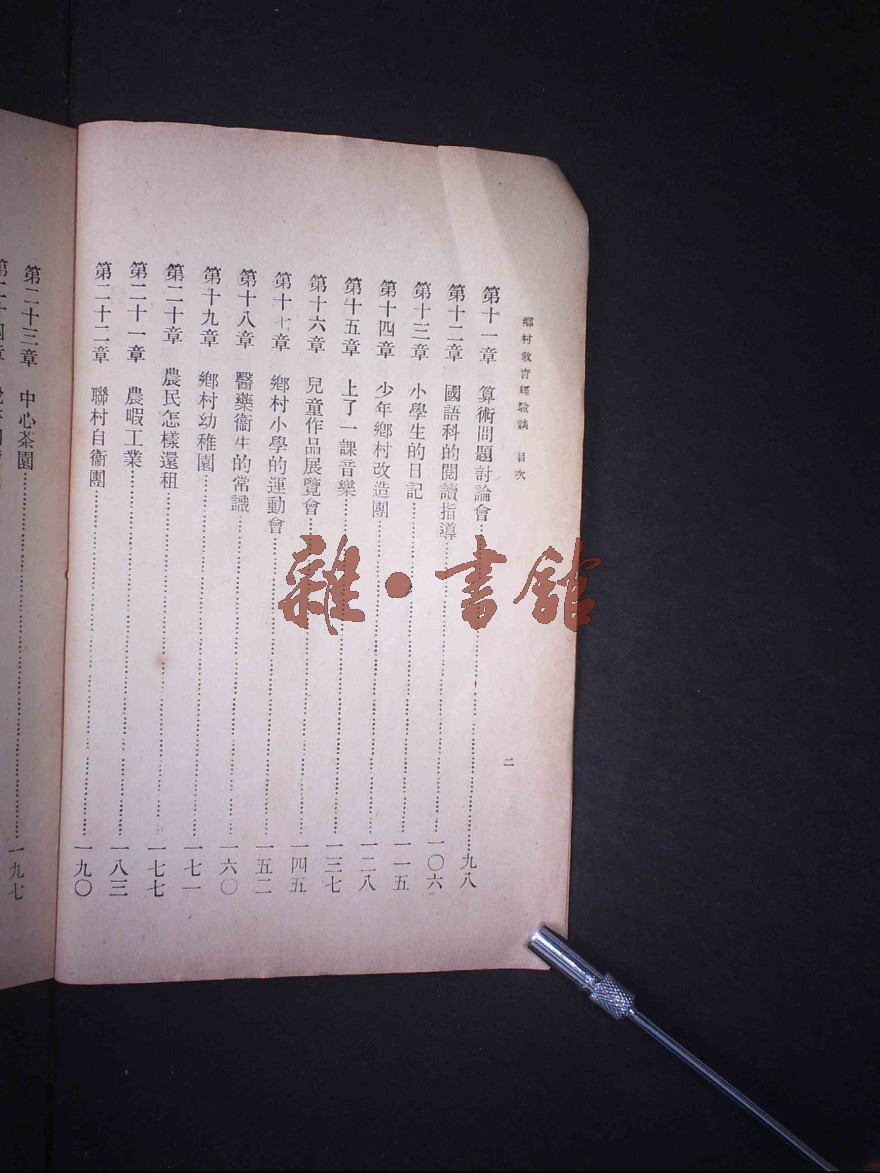 鄉村教育經驗談 目次
二
第十一章 算術問題討論會……九八
第十二章 國語科的閱讀指導……一〇六
第十三章 小學生的日記……一一五
第十四章 少年鄉村改造團……一二八
第十五章 上了一課音樂……一三七
第十六章 兒童作品展覽會……一四五
第十七章 鄉村小學的運動會……一五二
第十八章 醫藥衞生的常識……一六〇
第十九章 鄉村幼稚園……一七一
第二十章 農民怎樣還租……一七七
第二十一章 農暇工業……一八三
第二十二章 聯村自衞團……一九〇
第二十三章 中心茶園……一九七
雜·書館